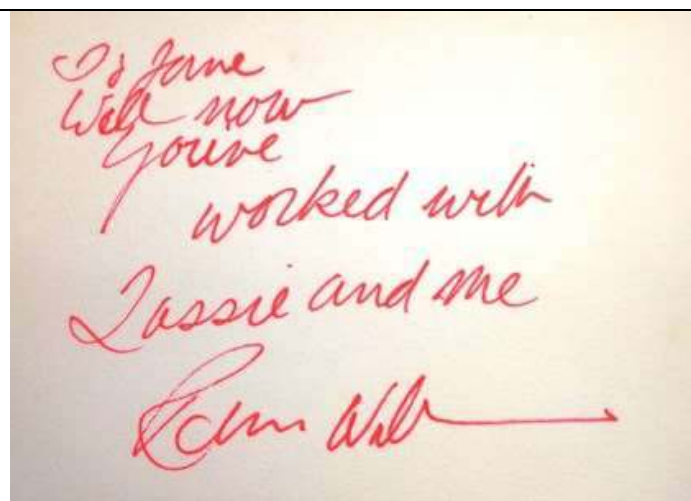 To Jane
Well now
You've
worked with
Lassie and me